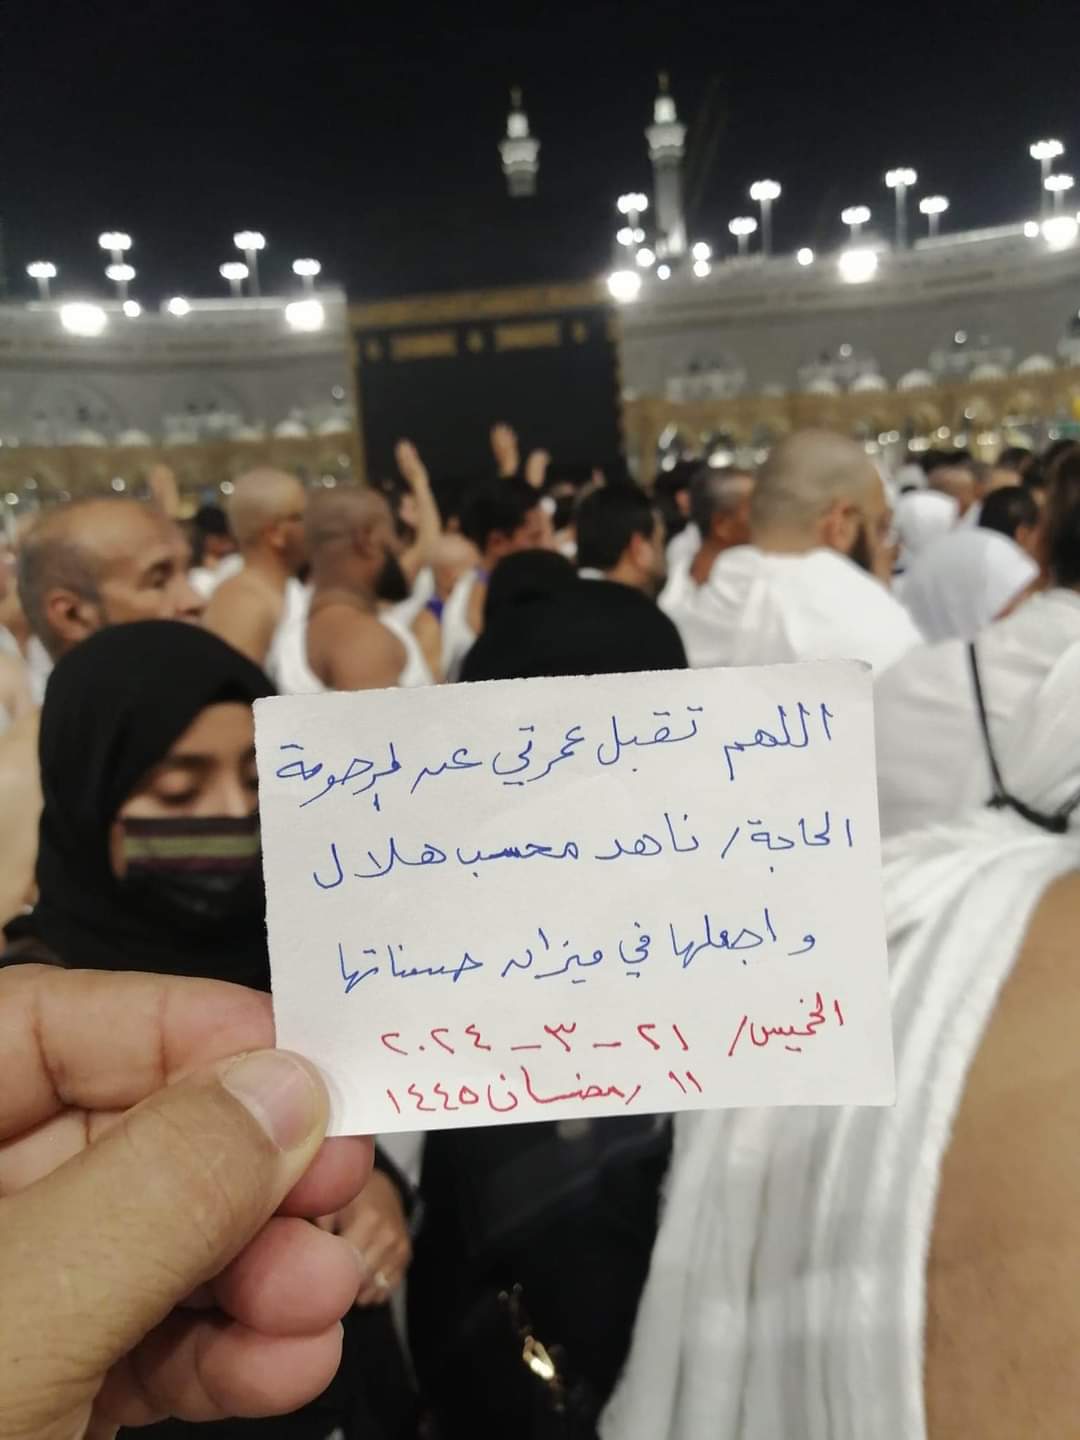 اللهم تقبل عمرتي عن المرحومة
الحاجة/ ناهد محسب هلال
واجعلها في ميزان حسناتها
الخميس/ ٢١ - ٣ - ٢٠٢٤
١١ رمضان ١٤٤٥